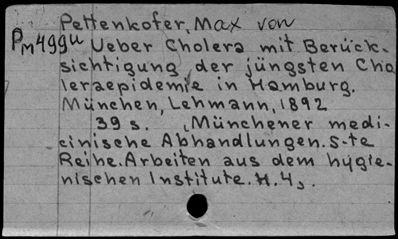 Pettenkofer, Max von
Pm499u Ueber Cholera mit Berück-
sichtigung der jüngsten Cho
leraepidemie in Hamburg.
München, Lehmann, 1892
39 s. (Münchener medi-
cinische Abhandlungen. 5-te
Reihe. Arbeiten aus dem hygie-
nischen Institute. H. 4).